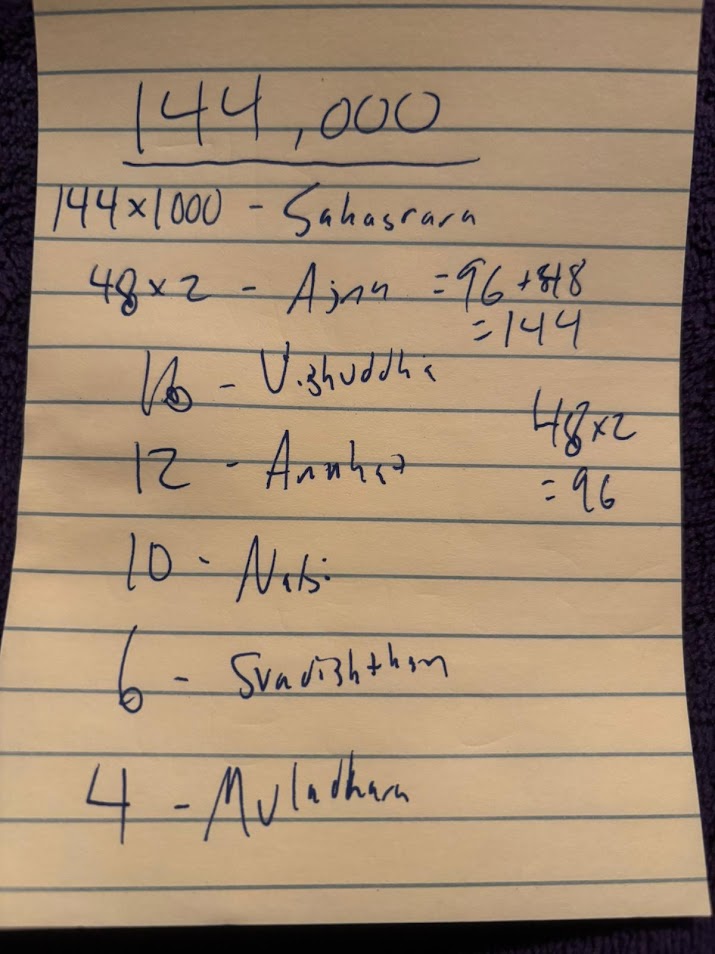 144,000
144x1000 - Sahasrara
48x2 - Ajna = 96 + 48
= 144
16 - Vishuddhi
48x2
12 - Anahat
= 96
10 - Nabi
6 - Svadishthan
4 - Muladhara